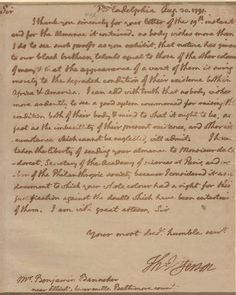 Sir Philadelphia Aug. 30. 1791.
I thank you sincerely for your letter of the 19th. instant
and for the Almanac it contained. no body wishes more than
I do to see such proofs as you exhibit, that nature has given
to our black brethren, talents equal to those of the other colours
of men, & that the appearance of a want of them is owing
merely to the degraded condition of their existence both in
Africa & America. I can add with truth that no body wishes
more ardently to see a good system commenced for raising the
condition both of their body & mind to what it ought to be, as
fast as the imbecillity of their present existence, and other cir-
cumstance which cannot be neglected, will admit. I have
taken the liberty of sending your almanac to Monsieur de Con-
dorcet, Secretary of the Academy of sciences at Paris, and mem-
ber of the Philanthropic society because I considered it as a
document to which your whole colour had a right for their
justification against the doubts which have been entertained
of them. I am with great esteem, Sir
Your most obedt. humble servt.
Th: Jefferson
Mr. Benjamin Banneker
near Ellicot's, lower mills, Baltimore county